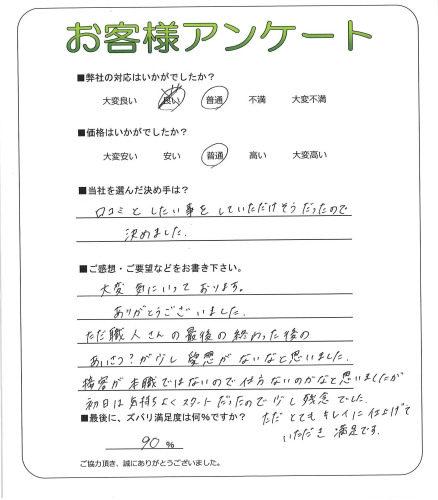 お客様アンケート
■弊社の対応はいかがでしたか？
大変良い 良い 普通 不満 大変不満
■価格はいかがでしたか？
大変安い 安い 普通 高い 大変高い
■当社を選んだ決め手は？
口コミとしたい事をしていただけそうだったので
決めました。
■ご感想・ご要望などをお書き下さい。
大変気にいっております。
ありがとうございました。
ただ職人さんの最後の終わった後の
あいさつ？が少し愛想がないなと思いました。
接客が本職ではないので仕方ないのかなと思いましたが
初日は気持ちよくスタートだったので少し残念でした。
■最後に、ズバリ満足度は何%ですか？
ただとてもキレイに仕上げて
いただき満足です。
90 %
ご協力頂き、誠にありがとうございました。